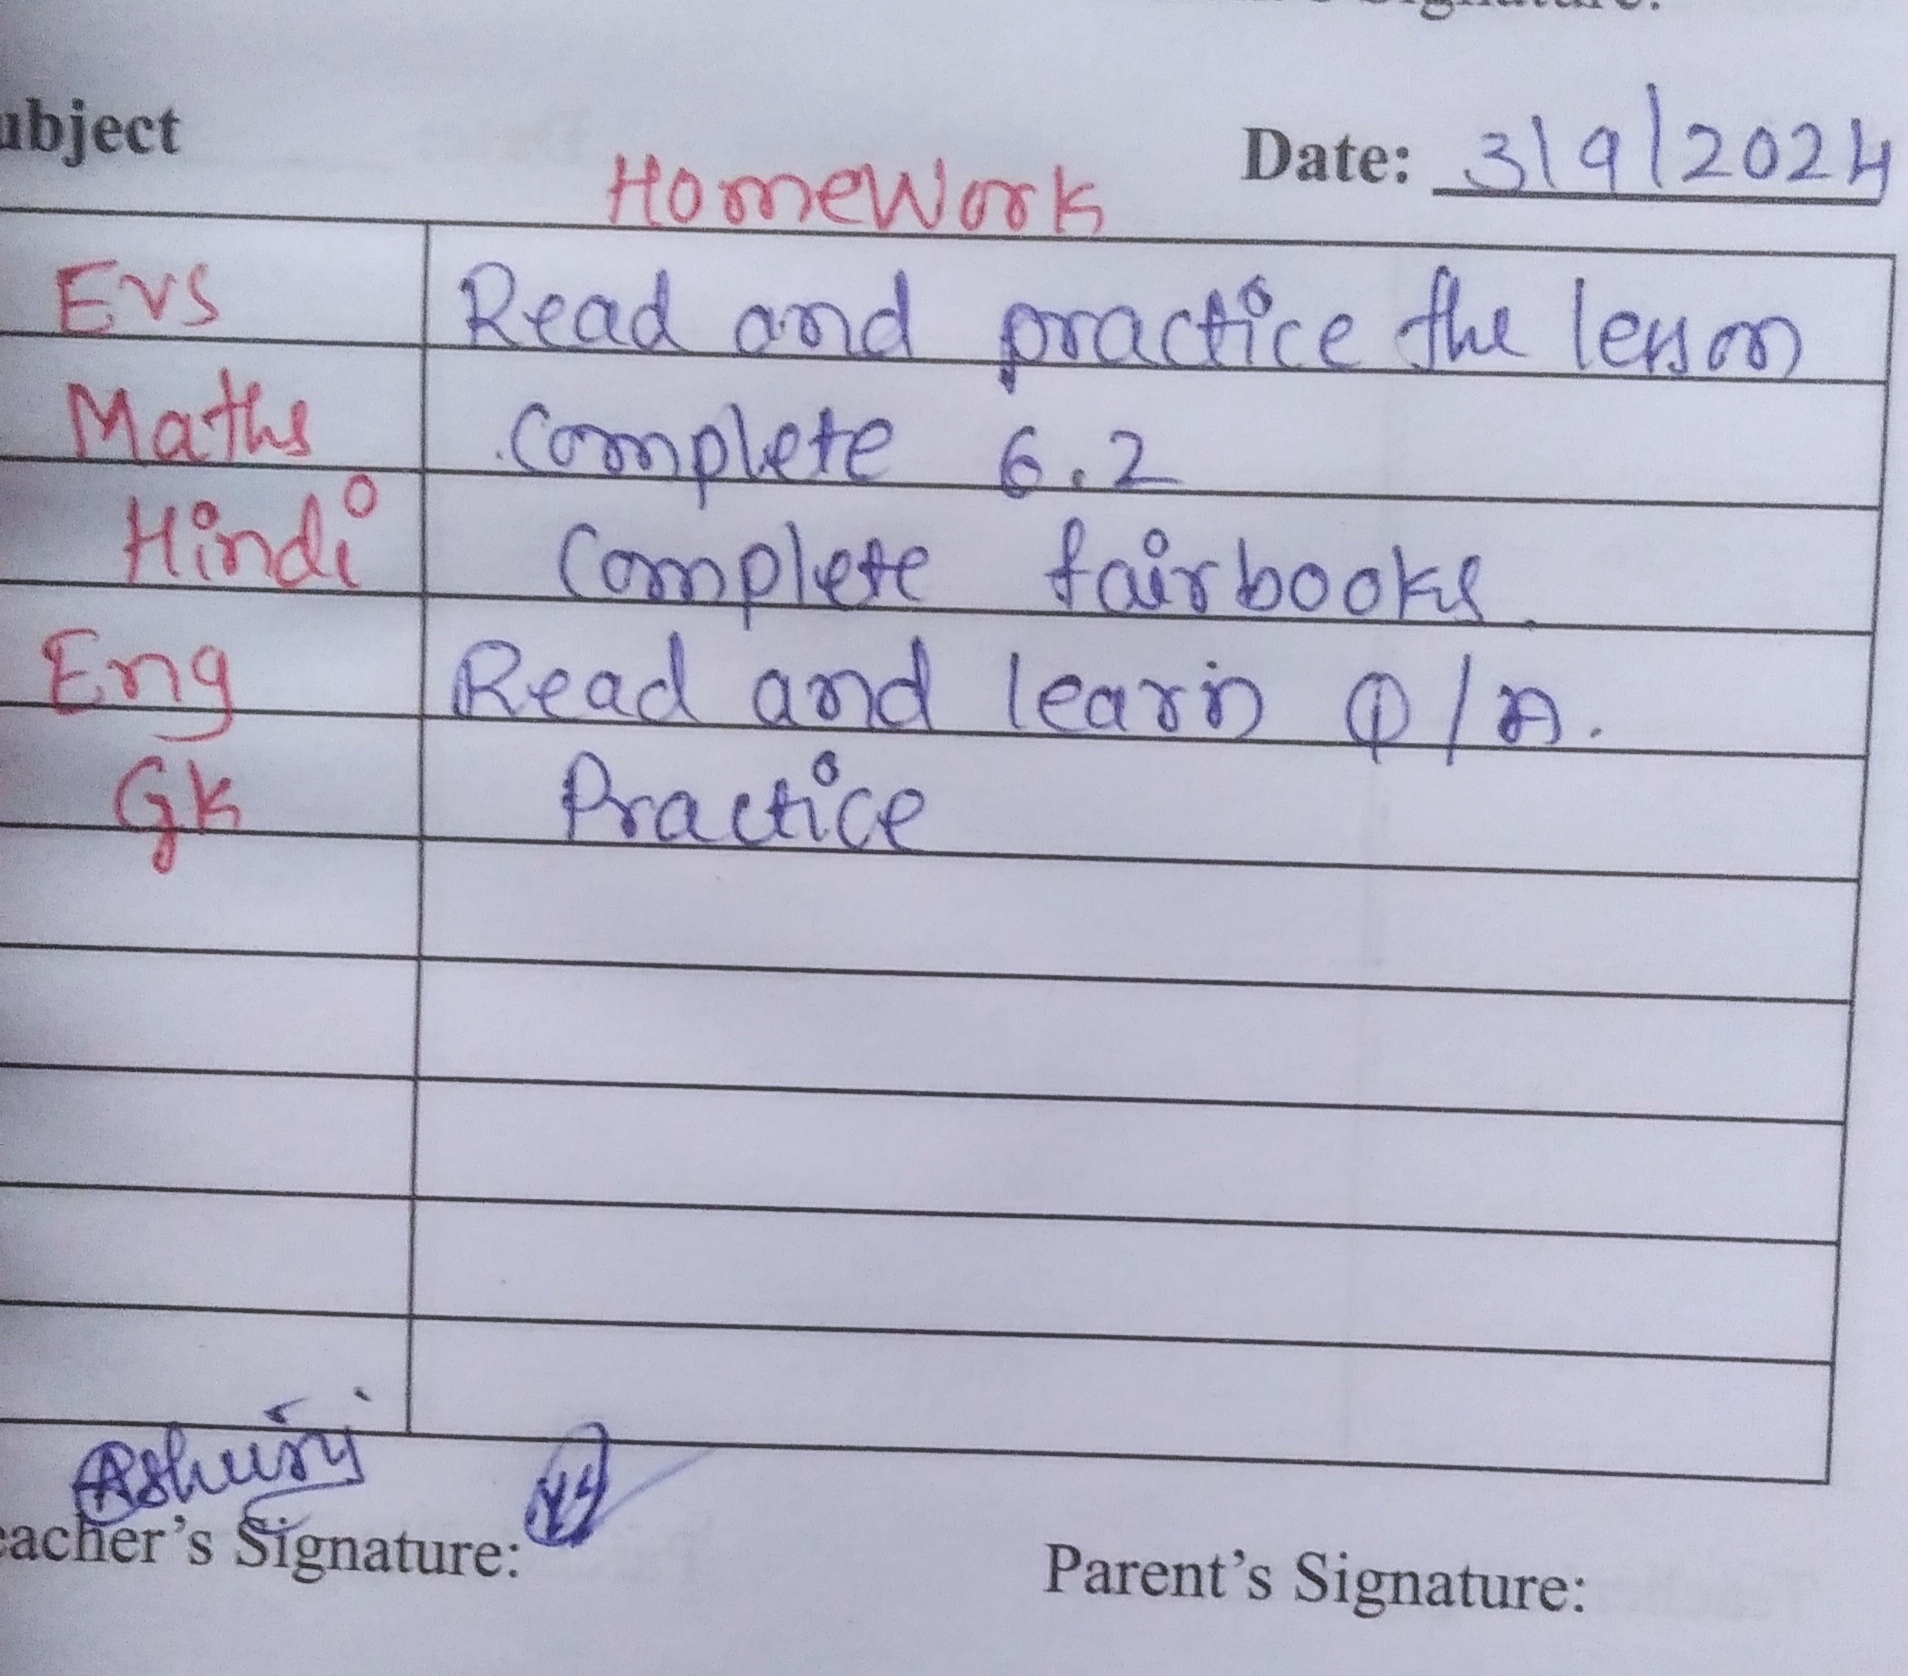 ubject Date: 3/9/2024
HomeWork
Evs Read and practice the lesson
Maths Complete 6.2
Hindi Complete fairbooks.
Eng Read and learn Q/A.
GK Practice
eacher's Signature: Parent's Signature: